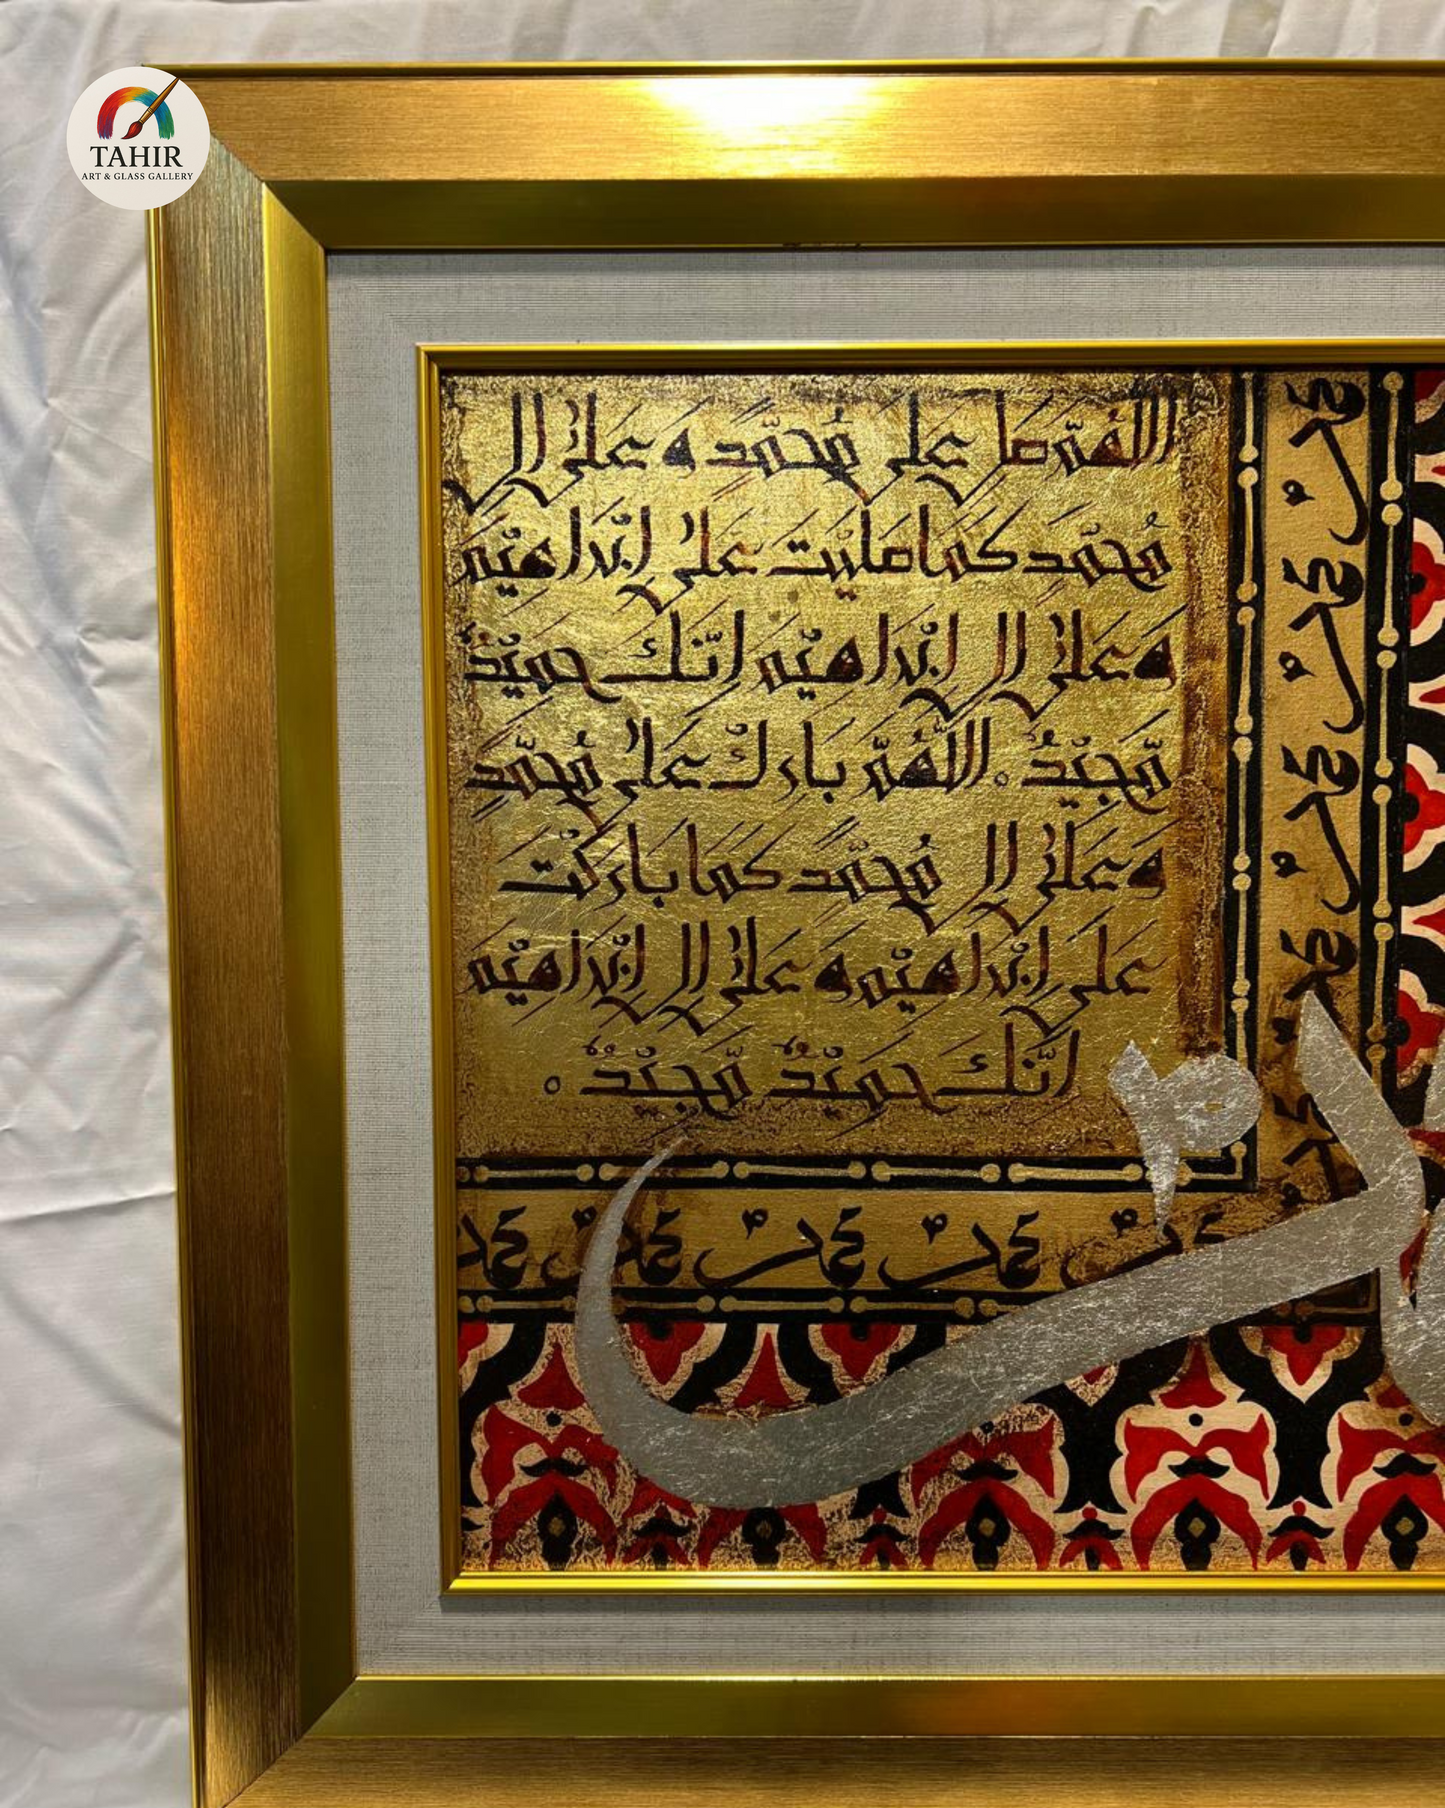 TAHIR
ART & GLASS GALLERY
اللهم صل على محمد وعلى ال
محمد كما صليت على ابراهيم
وعلى ال ابراهيم انك حميد
مجيد اللهم بارك على محمد
وعلى ال محمد كما باركت
على ابراهيم وعلى ال ابراهيم
انك حميد مجيد
محمد
محمد
محمد
محمد
محمد محمد محمد محمد